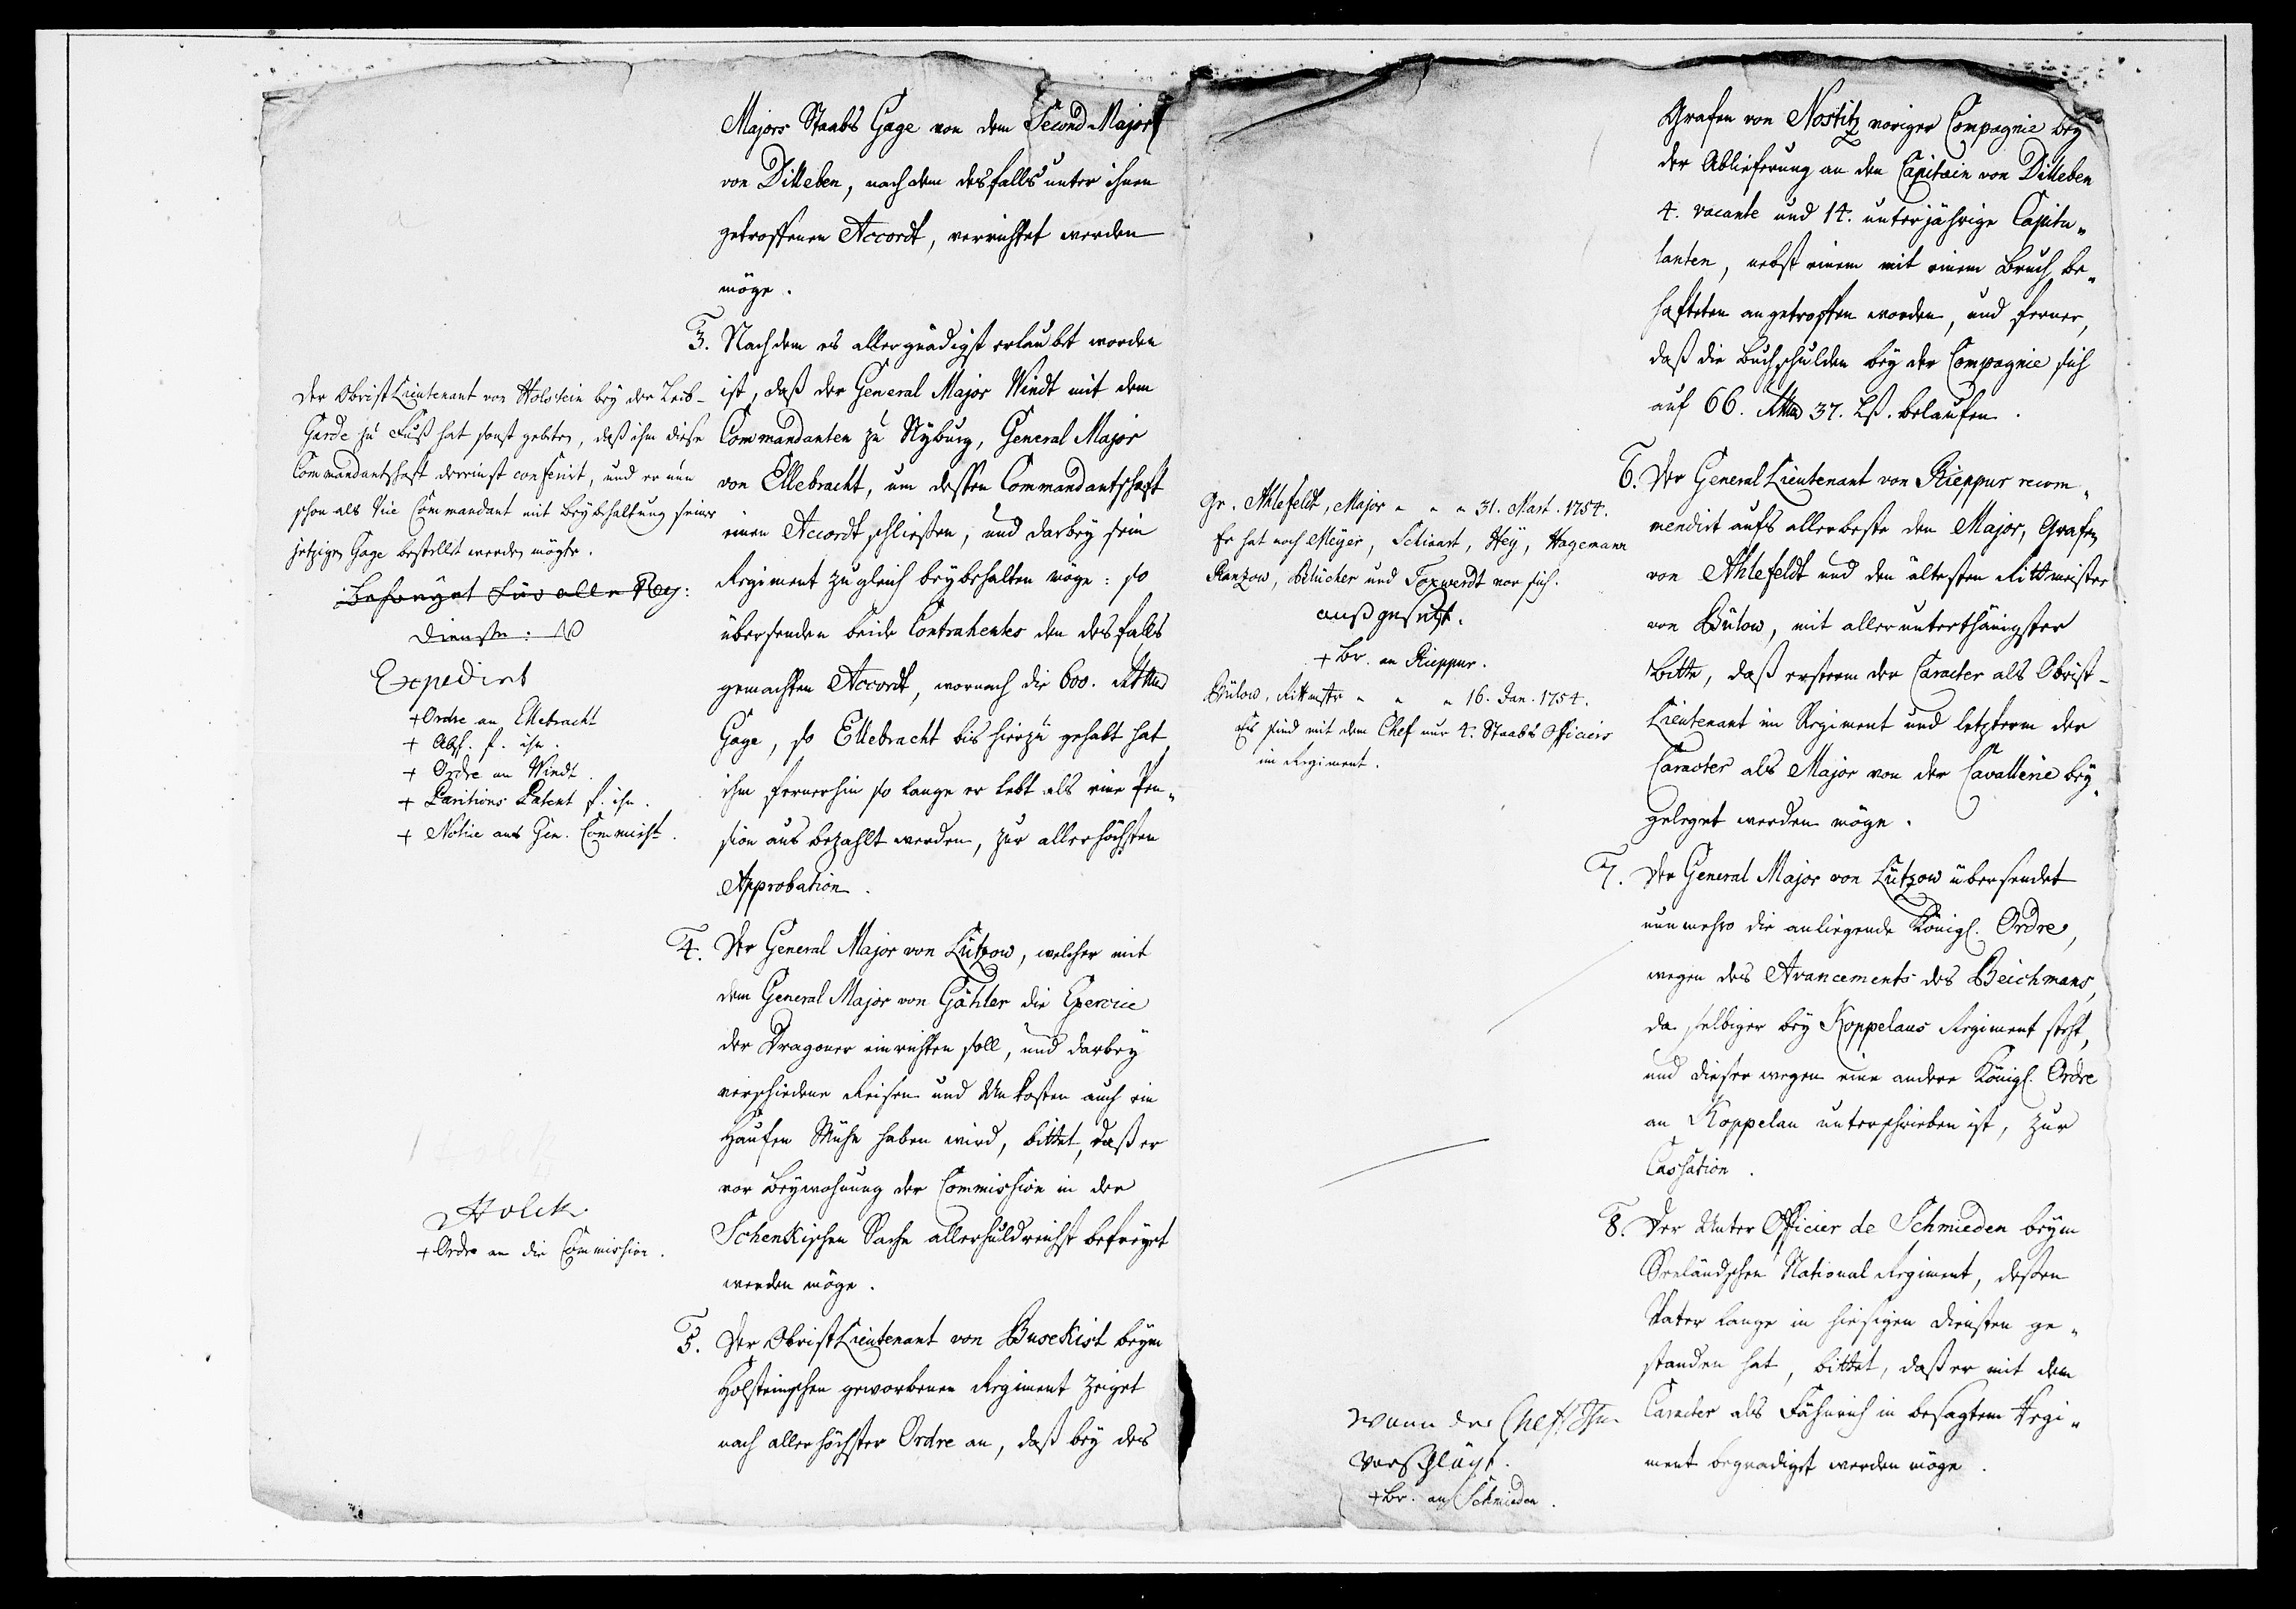 Majors Staabs Gage von dem Second Major
von Ditleben, nach dem desfalls unter ihnen
getroffenen Accordt, verrichtet werden
möge.
3. Nachdem es allergnädigst erlaubt worden
ist, daß der General Major Windt mit dem
Commandanten zu Nyburg, General Major
von Ellebracht, um dessen Commandantschafft
einen Accordt schließen, und darbey sein
Regiment zugleich beybehalten möge: so
übersenden beide Contrahentes den desfalls
gemachten Accordt, wornach die 600. Rthlr
Gage, so Ellebracht bis hierzu gehabt hat,
ihm fernerhin so lange er lebt als eine Pen„
sion aus bezahlt werden, zur allerhöchsten
Approbation.
Der Obrist Lieutenant von Holstein bey der Leib-
Garde zu Fuß hat sonst gebeten, daß ihm diese
Commandantschaft dereinst conferirt, und er nun
schon als Vice Commandant mit Beybehaltung seiner
jetzigen Gage bestellet werden mögte.
Dienste:
Expedirt
+ Ordre an Ellebracht
+ Absch. f. ihn.
+ Ordre an Windt.
+ Paritions Patent f. ihn.
+ Notice ans Gen. Commiss:
4. Der General Major von Lützow, welcher mit
dem General Major von Gähler die Exercice
der Dragoner einrichten soll, und darbey
verschiedene Reisen und Unkosten auch ein
Haufen Mühe haben wird, bittet, daß er
vor Beywohnung der Commission in der
Schenkischen Sache allerhuldreichst befreyet
werden möge.
Holck.
+ Ordre an die Commission.
5. Der Obrist Lieutenant von Busekist beym
Holsteinschen geworbenen Regiment zeiget
nach allerhöchster Ordre an, daß bey des
Grafen von Nostitz voriger Compagnie bey
der Ablieferung an den Capitain von Ditleben
4. vacante und 14. unterjährige Capitu„
lanten, nebst einem mit einem Bruch be„
hafteten angetroffen worden, und ferner,
daß die Buchschulden bey der Compagnie sich
auf 66. Rthlr 37. Lß. belaufen.
6. Der General Lieutenant von Rieppur recom„
mendirt aufs allerbeste den Major, Grafen
von Ahlefeldt und den ältesten Rittmeister
von Bülow, mit allerunterthänigster
Bitte, daß ersterm der Caracter als Obrist-
Lieutenant im Regiment und letzterm der
Caracter als Major von der Cavallerie bey„
geleget werden möge.
Gr. Ahlefeldt, Major „ „ „ 31. Mart. 1754.
Er hat noch Meyer, Hey, Hagemann
Ranzow, Blücher und vor sich.
außgesetzt.
+ Br. an Rieppur.
Bülow, Rittmstr „ „ „ 16. Jan. 1754.
Es sind mit dem Chef nur 4. Staabs Officiers
im Regiment.
7. Der General Major von Lützow übersendet
nunmehro die anliegende Königl. Ordre,
wegen des Avancements des Beichmans,
da selbiger bey Koppelaus Regiment steht,
und dieserwegen eine andere Königl. Ordre
an Koppelau unterschrieben ist, zur
Cassation.
8. Der Unter Officier de Schmieden beym
Seeländschen National Regiment, dessen
Vater lange in hiesigen Diensten ge„
standen hat, bittet, daß er mit dem
Caracter als Fähnrich in besagtem Regi„
ment begnadiget werden möge.
Wann der Chef Ihn
vorschlägt.
+ Br. an Schmieden.